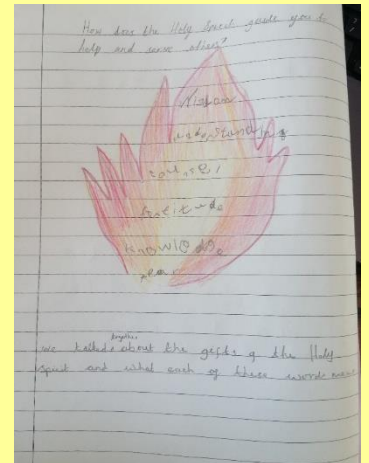 How does the Holy Spirit guide you to
help and serve others?
Wisdom
understanding
counsel
knowledge
together
we talked about the gifts of the Holy
spirit and what each of these word